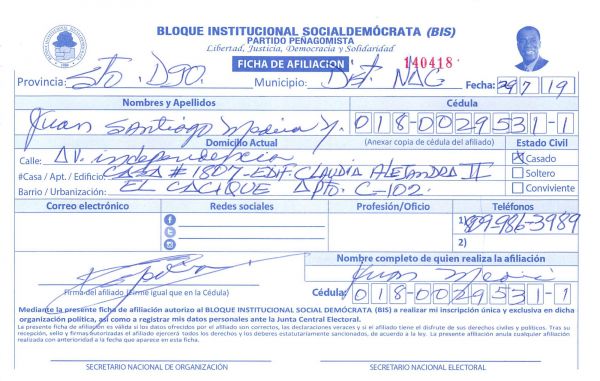 BLOQUE INSTITUCIONAL SOCIALDEMÓCRATA (BIS)
PARTIDO PEÑAGOMISTA
Libertad, Justicia, Democracia y Solidaridad
FICHA DE AFILIACIÓN 140418
Provincia: Sto. DGO. Municipio: Dist. NAC Fecha: 29 7 19
Nombres y Apellidos Cédula
Juan Santiago Medina M. 018-0029531-1
Domicilio Actual (Anexar copia de cédula del afiliado) Estado Civil
Calle: AV. independencia X Casado
#Casa / Apt. / Edificio: CASA # 1807-EDIF. CLAUDIA ALEJANDRA II Soltero
Barrio / Urbanización: EL CACIQUE APTO. C-102. Conviviente
Correo electrónico Redes sociales Profesión/Oficio Teléfonos
1) 809-986-3989
2)
Nombre completo de quien realiza la afiliación
Juan Medina
Firma del afiliado (Firme igual que en la Cédula) Cédula: 018-0029531-1
Mediante la presente ficha de afiliación autorizo al BLOQUE INSTITUCIONAL SOCIAL DEMÓCRATA (BIS) a realizar mi inscripción única y exclusiva en dicha
organización política, así como a registrar mis datos personales ante la Junta Central Electoral.
La presente ficha de afiliación es válida si los datos ofrecidos por el afiliado son correctos, las declaraciones veraces y si el afiliado tiene el disfrute de sus derechos civiles y políticos. Tras su
recepción, sello y firmas autorizadas el afiliado ejercerá todos los derechos y los deberes estatutariamente sancionados, de acuerdo a la ley. La presente afiliación anula cualquier afiliación
realizada con anterioridad a la fecha que aparece en esta ficha.
SECRETARIO NACIONAL DE ORGANIZACIÓN SECRETARIO NACIONAL ELECTORAL